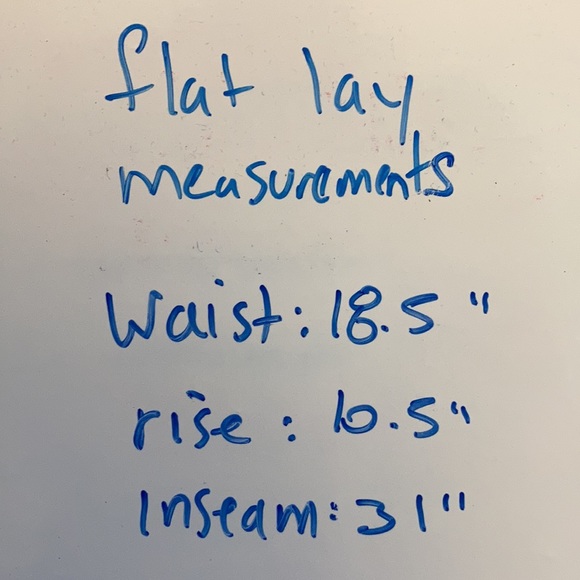 flat lay
measurements
Waist: 18.5"
rise: 10.5"
Inseam: 31"